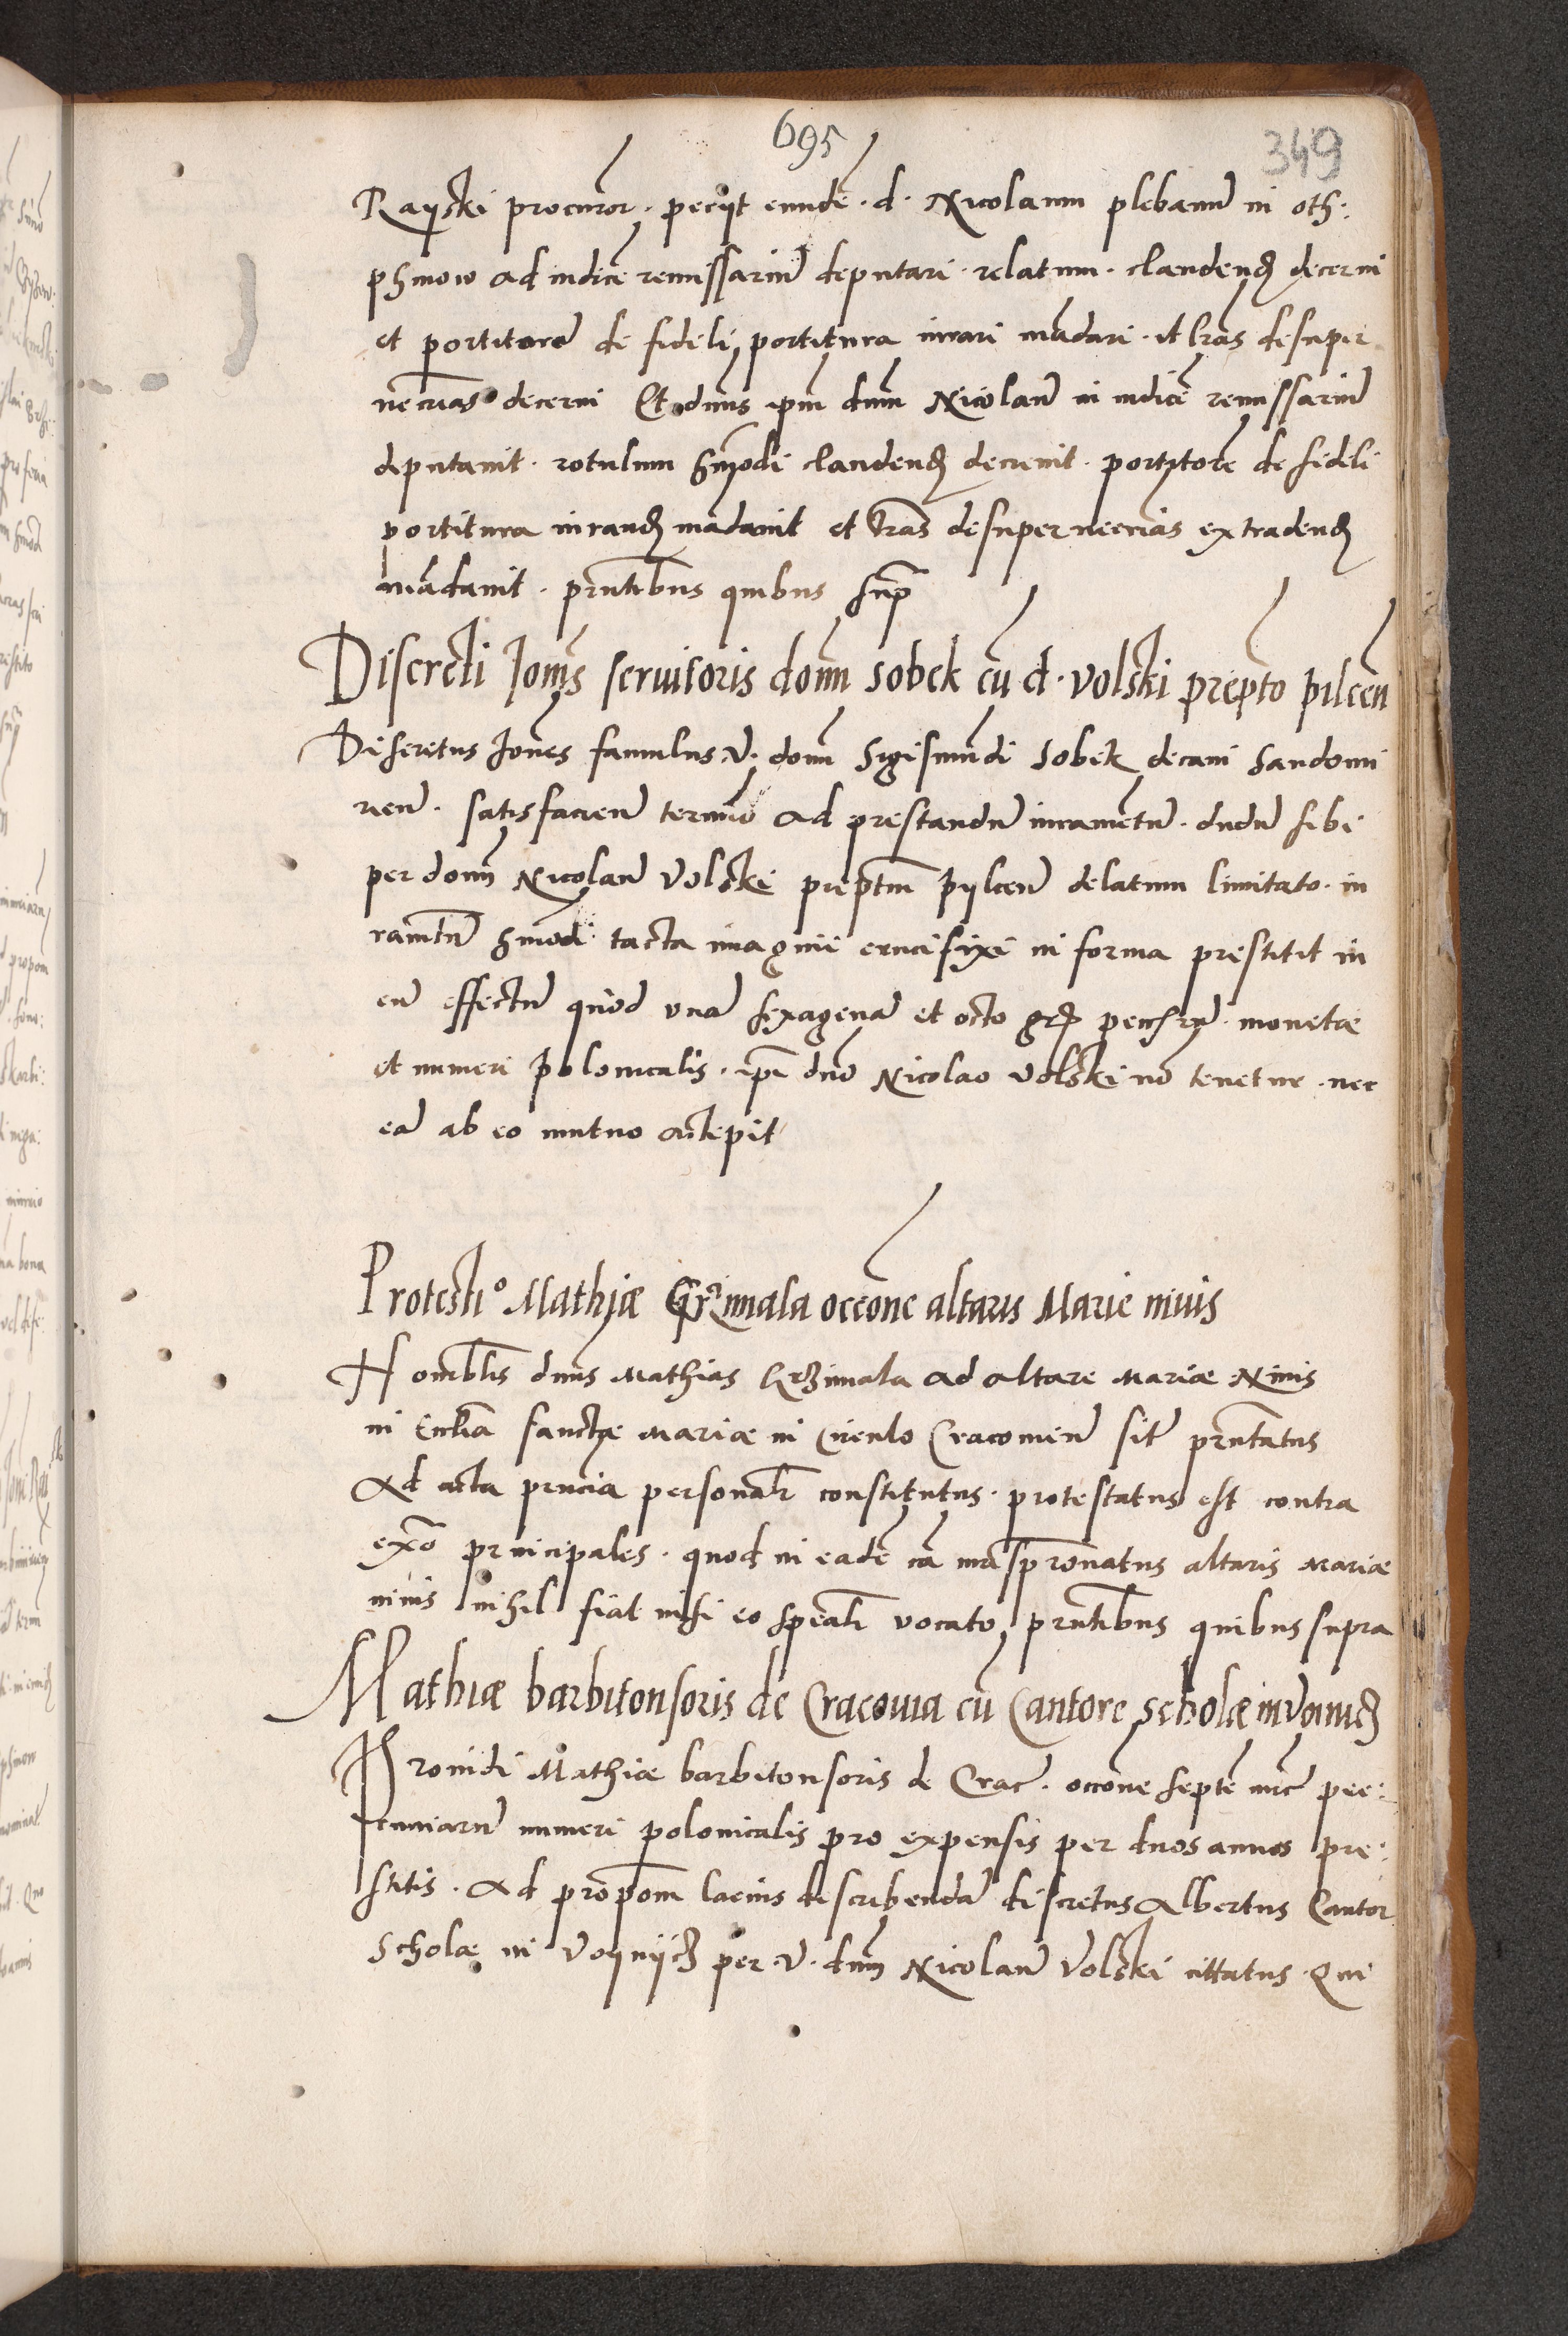 695
349
Rayski procuror · peciit eunde · d · Nicolaum plebanu in oth:
phinow ad iudice remissariu deputari · relatum · claudend decerni
et portitore de fideli portitura iurari madari · et lras desuper
necrias decerni Et dnus ipm dnm Nicolau in iudice remissariu
deputauit · rotulum hmodi claudend decreuit · portitore de fideli
portitura iurand madauit et lras desuper necrias extradend
madauit · prntibus quibus sup
Discreti Jonis seruitoris domi Sobek cu d · Volski prepto pilcen
Discretus Jones famulus V · domi Sigismundi Sobek decani Sandomi
rien · satisfacien termio ad prestandu iurametu · dudu sibi
per domi Nicolau Volski preptm pylcen delatum limitato · iu
ramtu hmodi tacta imagine crucifixi in forma prestitit in
eu effectu quod una sexagena et octo gr pecuniaru · monetæ
et numeri polonicalis · ipi dno Nicolao Volski no tenetur · nec
ea ab eo mutuo accepit
Protesti° Mathiæ Grzimala occone altaris Marie niuis
Honorblis dnus Mathias Grzimala ad altare Mariæ Niuis
in Ecclia sanctæ Mariæ in Circulo Cracouien sit prntatus
Ad acta prncia personalr constitutus · protestatus est contra
exo principales · quod in eade ca iurispronatus altaris Mariæ
niuis nihil fiat nisi eo spealr vocato prntibus quibus supra
Mathiæ barbitonsoris de Cracouia cu Cantore scholæ in Voinicz
Prouidi Mathiæ barbitonsoris de Crac · occone septe mrc pec:
cuniaru numeri polonicalis pro expensis per duos annos pre:
stitis · Ad propom lacius describenda discretus Albertus Cantor
Scholæ in Voynijcz per · V · dnm Nicolau Volski cittatus · Qui